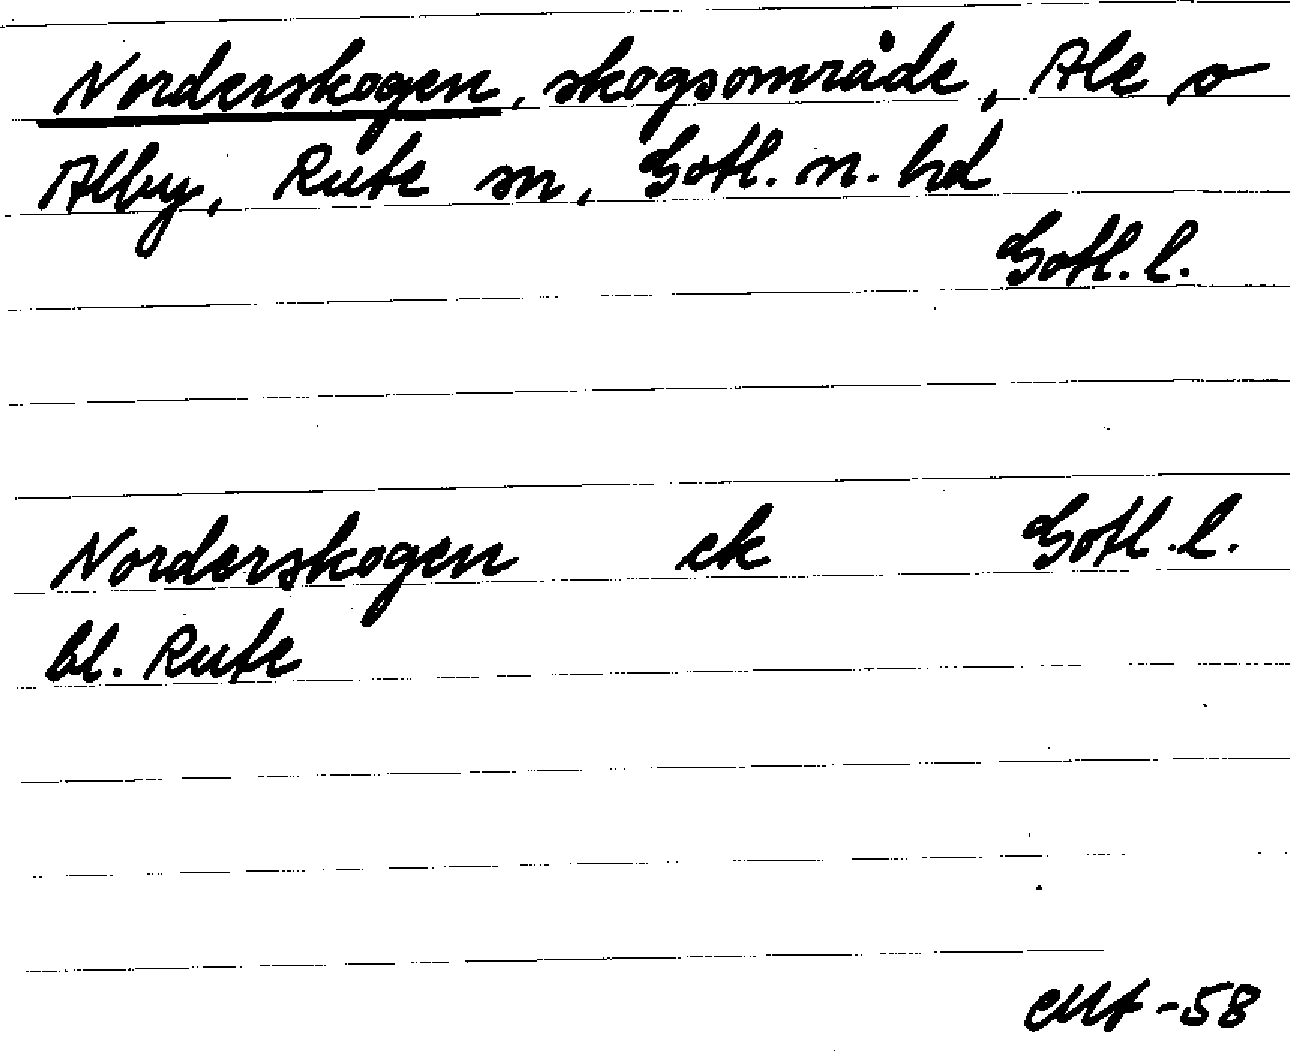 Norderskogen, skogsområde, Ale o
Alby, Rute sn, Gotl. n. hd
Gotl. l.
Norderskogen ek Gotl. l.
bl. Rute
-58